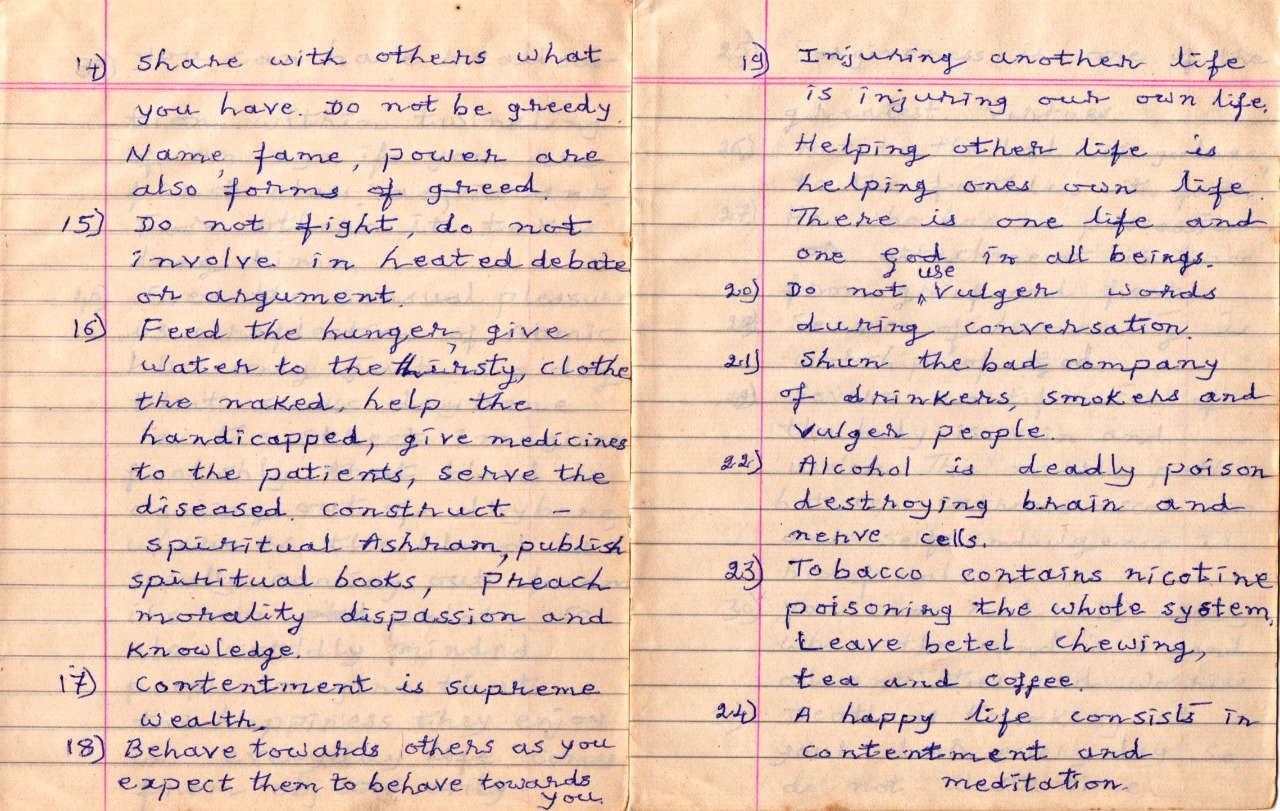 14) Share with others what
you have. Do not be greedy.
Name, fame, power are
also forms of greed.
15) Do not fight, do not
involve in heated debate
or argument.
16) Feed the hunger, give
water to the thirsty, clothe
the naked, help the
handicapped, give medicines
to the patients, serve the
diseased. construct –
spiritual Ashram, publish
spiritual books, preach
morality dispassion and
knowledge.
17) Contentment is supreme
wealth.
18) Behave towards others as you
expect them to behave towards
you.
19) Injuring another life
is injuring our own life.
Helping other life is
helping ones own life.
There is one life and
one god in all beings.
20) Do not use vulger words
during conversation.
21) Shun the bad company
of drinkers, smokers and
vulger people.
22) Alcohol is deadly poison
destroying brain and
nerve cells.
23) Tobacco contains nicotine
poisoning the whole system,
Leave betel chewing,
tea and coffee.
24) A happy life consists in
contentment and
meditation.